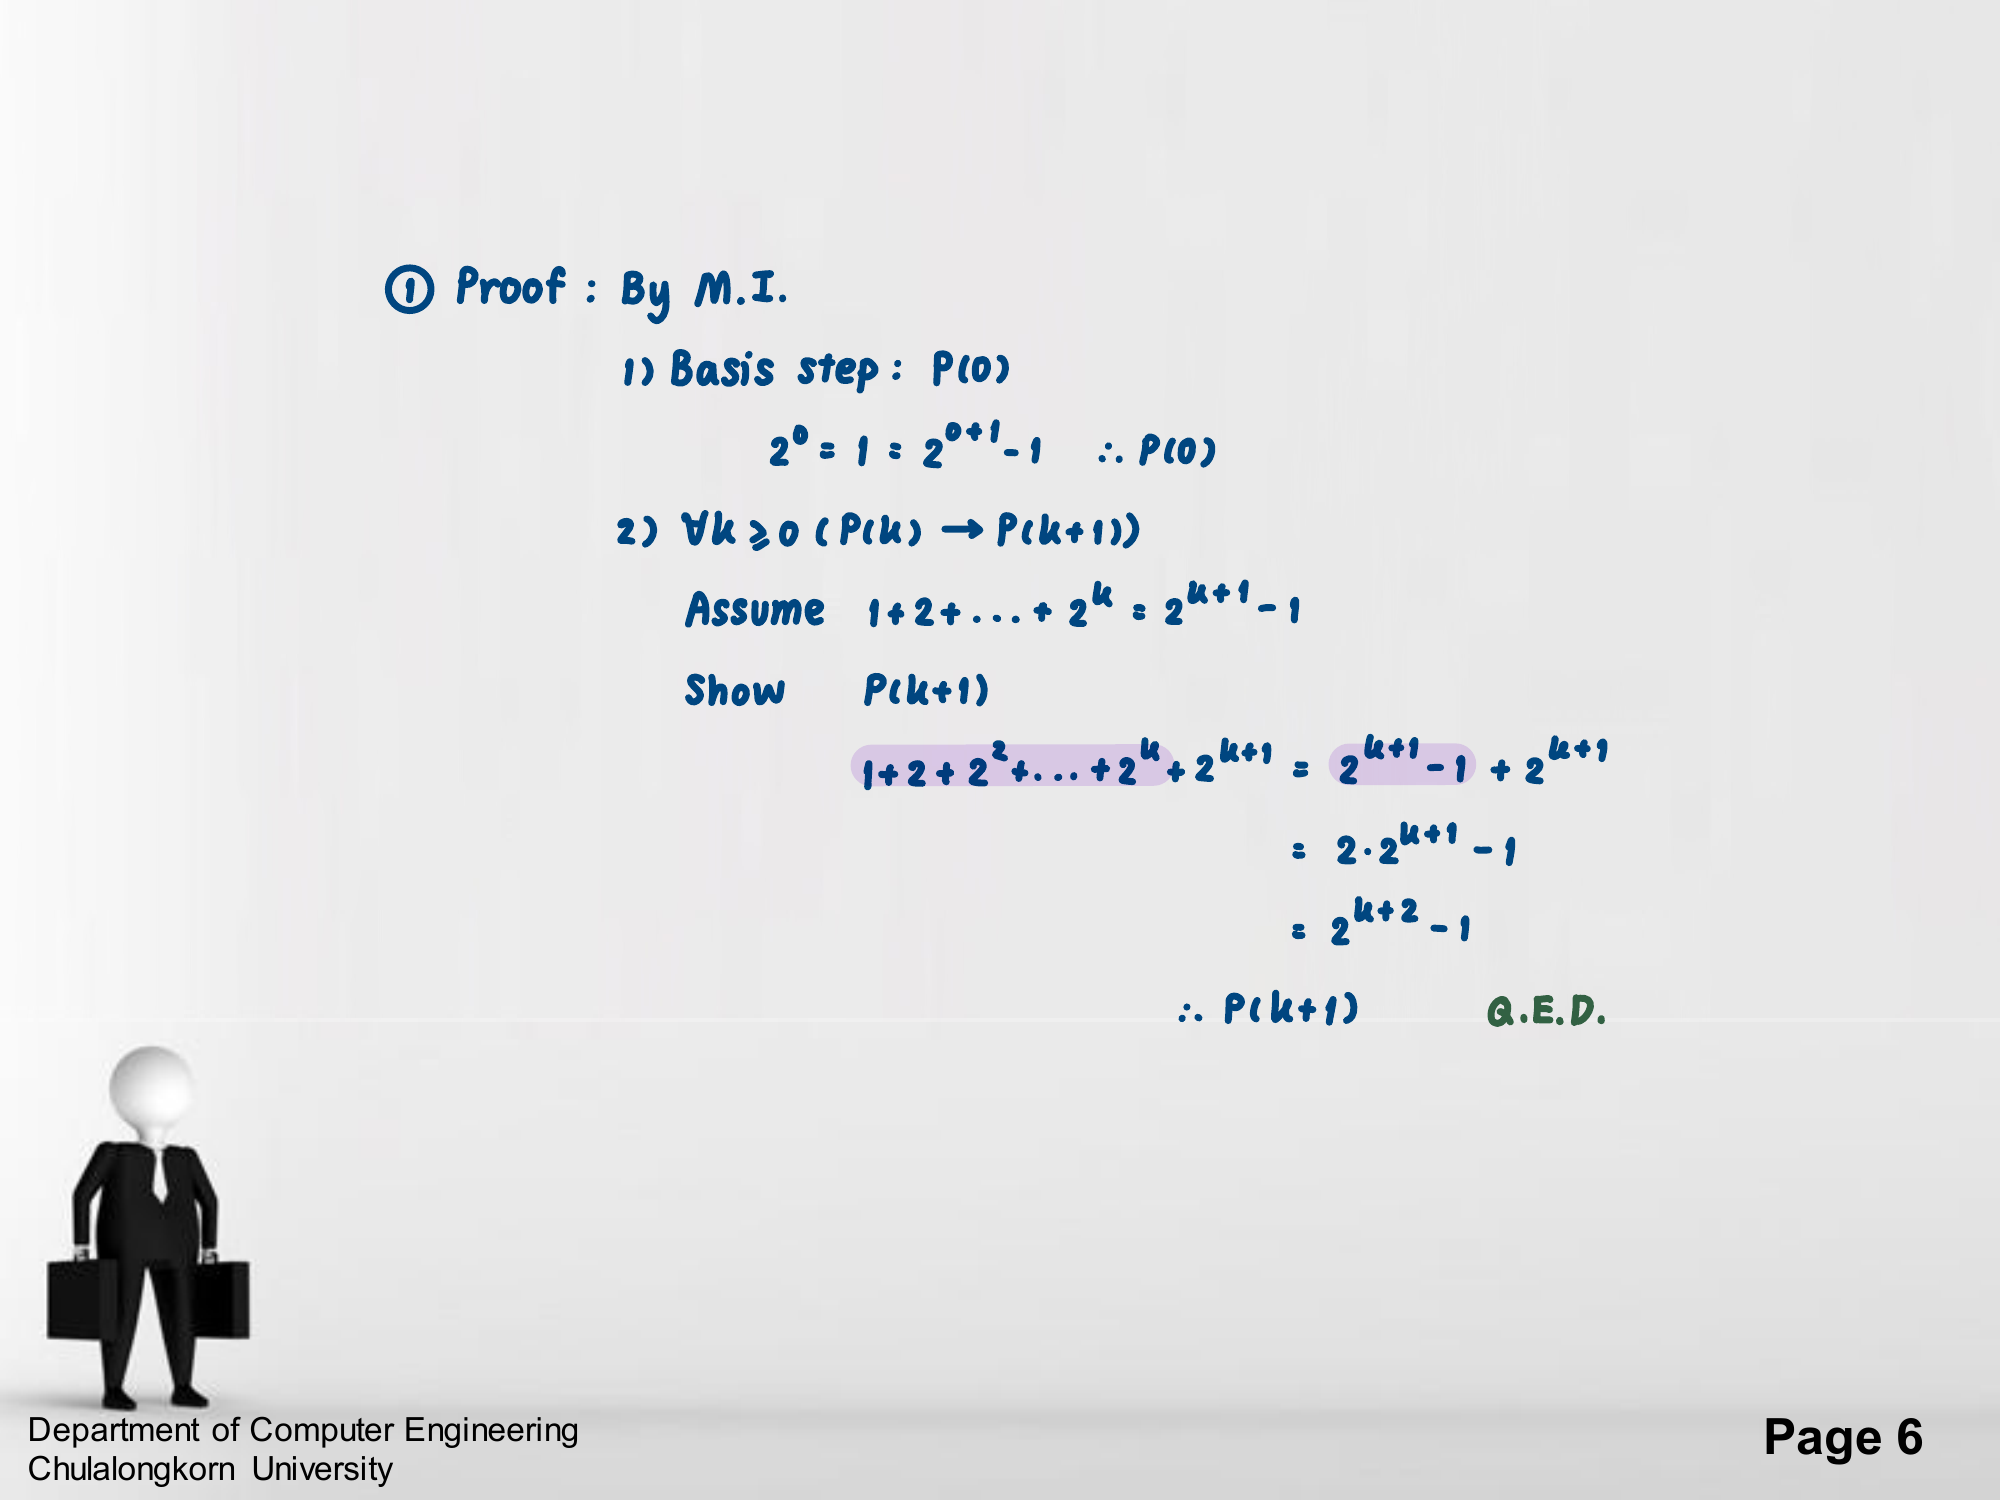 ① Proof : By M.I.
1) Basis step : P(0)
2⁰ = 1 = 2⁰⁺¹ - 1 ∴ P(0)
2) ∀k ⩾ 0 ( P(k) → P(k+1))
Assume 1 + 2 + ... + 2ᵏ = 2ᵏ⁺¹ - 1
Show P(k+1)
1 + 2 + 2² + ... + 2ᵏ + 2ᵏ⁺¹ = 2ᵏ⁺¹ - 1 + 2ᵏ⁺¹
= 2 · 2ᵏ⁺¹ - 1
= 2ᵏ⁺² - 1
∴ P(k+1) Q.E.D.
Department of Computer Engineering
Chulalongkorn University
Page 6